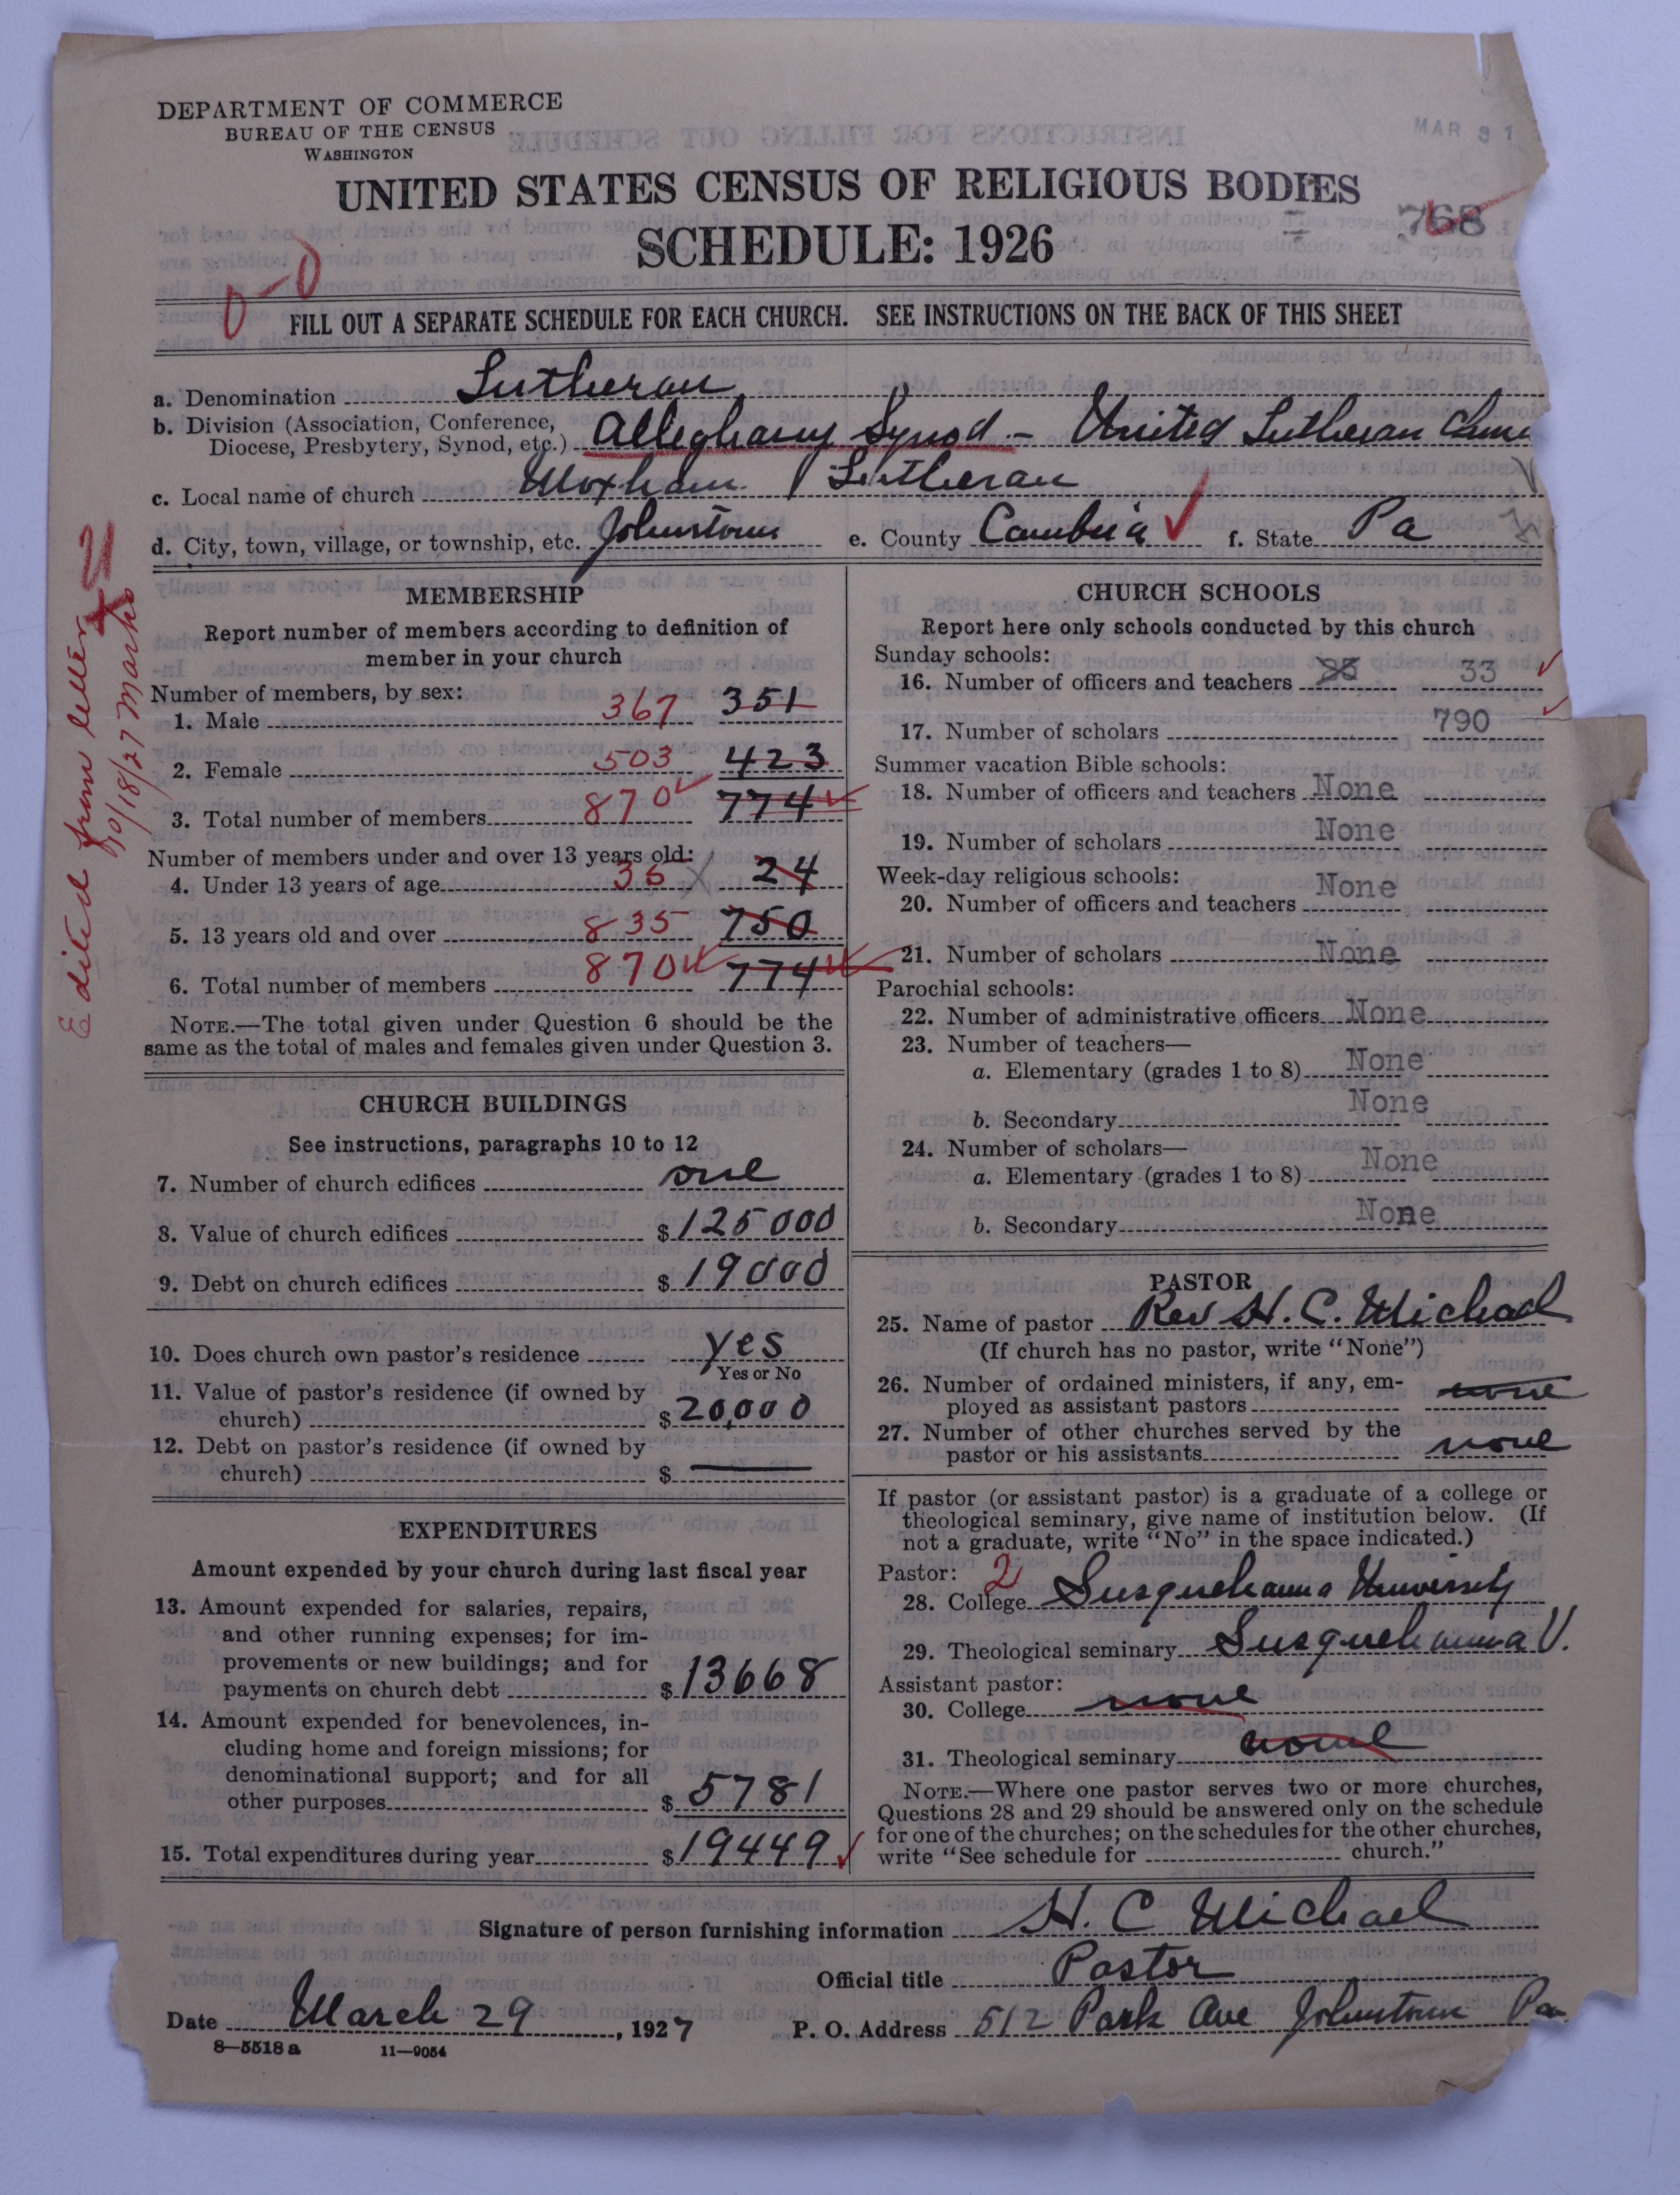 DEPARTMENT OF COMMERCE
BUREAU OF THE CENSUS
WASHINGTON
MAR 31
UNITED STATES CENSUS OF RELIGIOUS BODIES
SCHEDULE: 1926
768
0-0
FILL OUT A SEPARATE SCHEDULE FOR EACH CHURCH. SEE INSTRUCTIONS ON THE BACK OF THIS SHEET
a. Denomination Lutheran
b. Division (Association, Conference,
Diocese, Presbytery, Synod, etc.) Alleghany Synod - United Lutheran
c. Local name of church Moxham Lutheran
d. City, town, village, or township, etc. Johnstown e. County Cambria f. State Pa
Edited from letter
10/18/27 Marks
MEMBERSHIP
Report number of members according to definition of
member in your church
Number of members, by sex:
1. Male 367 351
2. Female 503 423
3. Total number of members 870 774
Number of members under and over 13 years old:
4. Under 13 years of age 35 24
5. 13 years old and over 835 750
6. Total number of members 870 774
NOTE.—The total given under Question 6 should be the
same as the total of males and females given under Question 3.
CHURCH BUILDINGS
See instructions, paragraphs 10 to 12
7. Number of church edifices one
8. Value of church edifices $ 125000
9. Debt on church edifices $ 19000
10. Does church own pastor's residence yes
Yes or No
11. Value of pastor's residence (if owned by
church) $ 20,000
12. Debt on pastor's residence (if owned by
church) $ —
EXPENDITURES
Amount expended by your church during last fiscal year
13. Amount expended for salaries, repairs,
and other running expenses; for im-
provements or new buildings; and for
payments on church debt $ 13668
14. Amount expended for benevolences, in-
cluding home and foreign missions; for
denominational support; and for all
other purposes $ 5781
15. Total expenditures during year $ 19449
CHURCH SCHOOLS
Report here only schools conducted by this church
Sunday schools:
16. Number of officers and teachers 33
17. Number of scholars 790
Summer vacation Bible schools:
18. Number of officers and teachers None
19. Number of scholars None
Week-day religious schools:
20. Number of officers and teachers None
21. Number of scholars None
Parochial schools:
22. Number of administrative officers None
23. Number of teachers—
a. Elementary (grades 1 to 8) None
b. Secondary None
24. Number of scholars—
a. Elementary (grades 1 to 8) None
b. Secondary None
PASTOR
25. Name of pastor Rev H. C. Michael
(If church has no pastor, write "None")
26. Number of ordained ministers, if any, em-
ployed as assistant pastors none
27. Number of other churches served by the
pastor or his assistants none
If pastor (or assistant pastor) is a graduate of a college or
theological seminary, give name of institution below. (If
not a graduate, write "No" in the space indicated.)
Pastor: 2
28. College Susquehanna University
29. Theological seminary Susquehanna U.
Assistant pastor:
30. College none
31. Theological seminary none
NOTE.—Where one pastor serves two or more churches,
Questions 28 and 29 should be answered only on the schedule
for one of the churches; on the schedules for the other churches,
write "See schedule for church."
Signature of person furnishing information H. C Michael
Official title Pastor
Date March 29, 1927 P. O. Address 512 Park Ave Johnstown Pa
8—5518a 11—9054